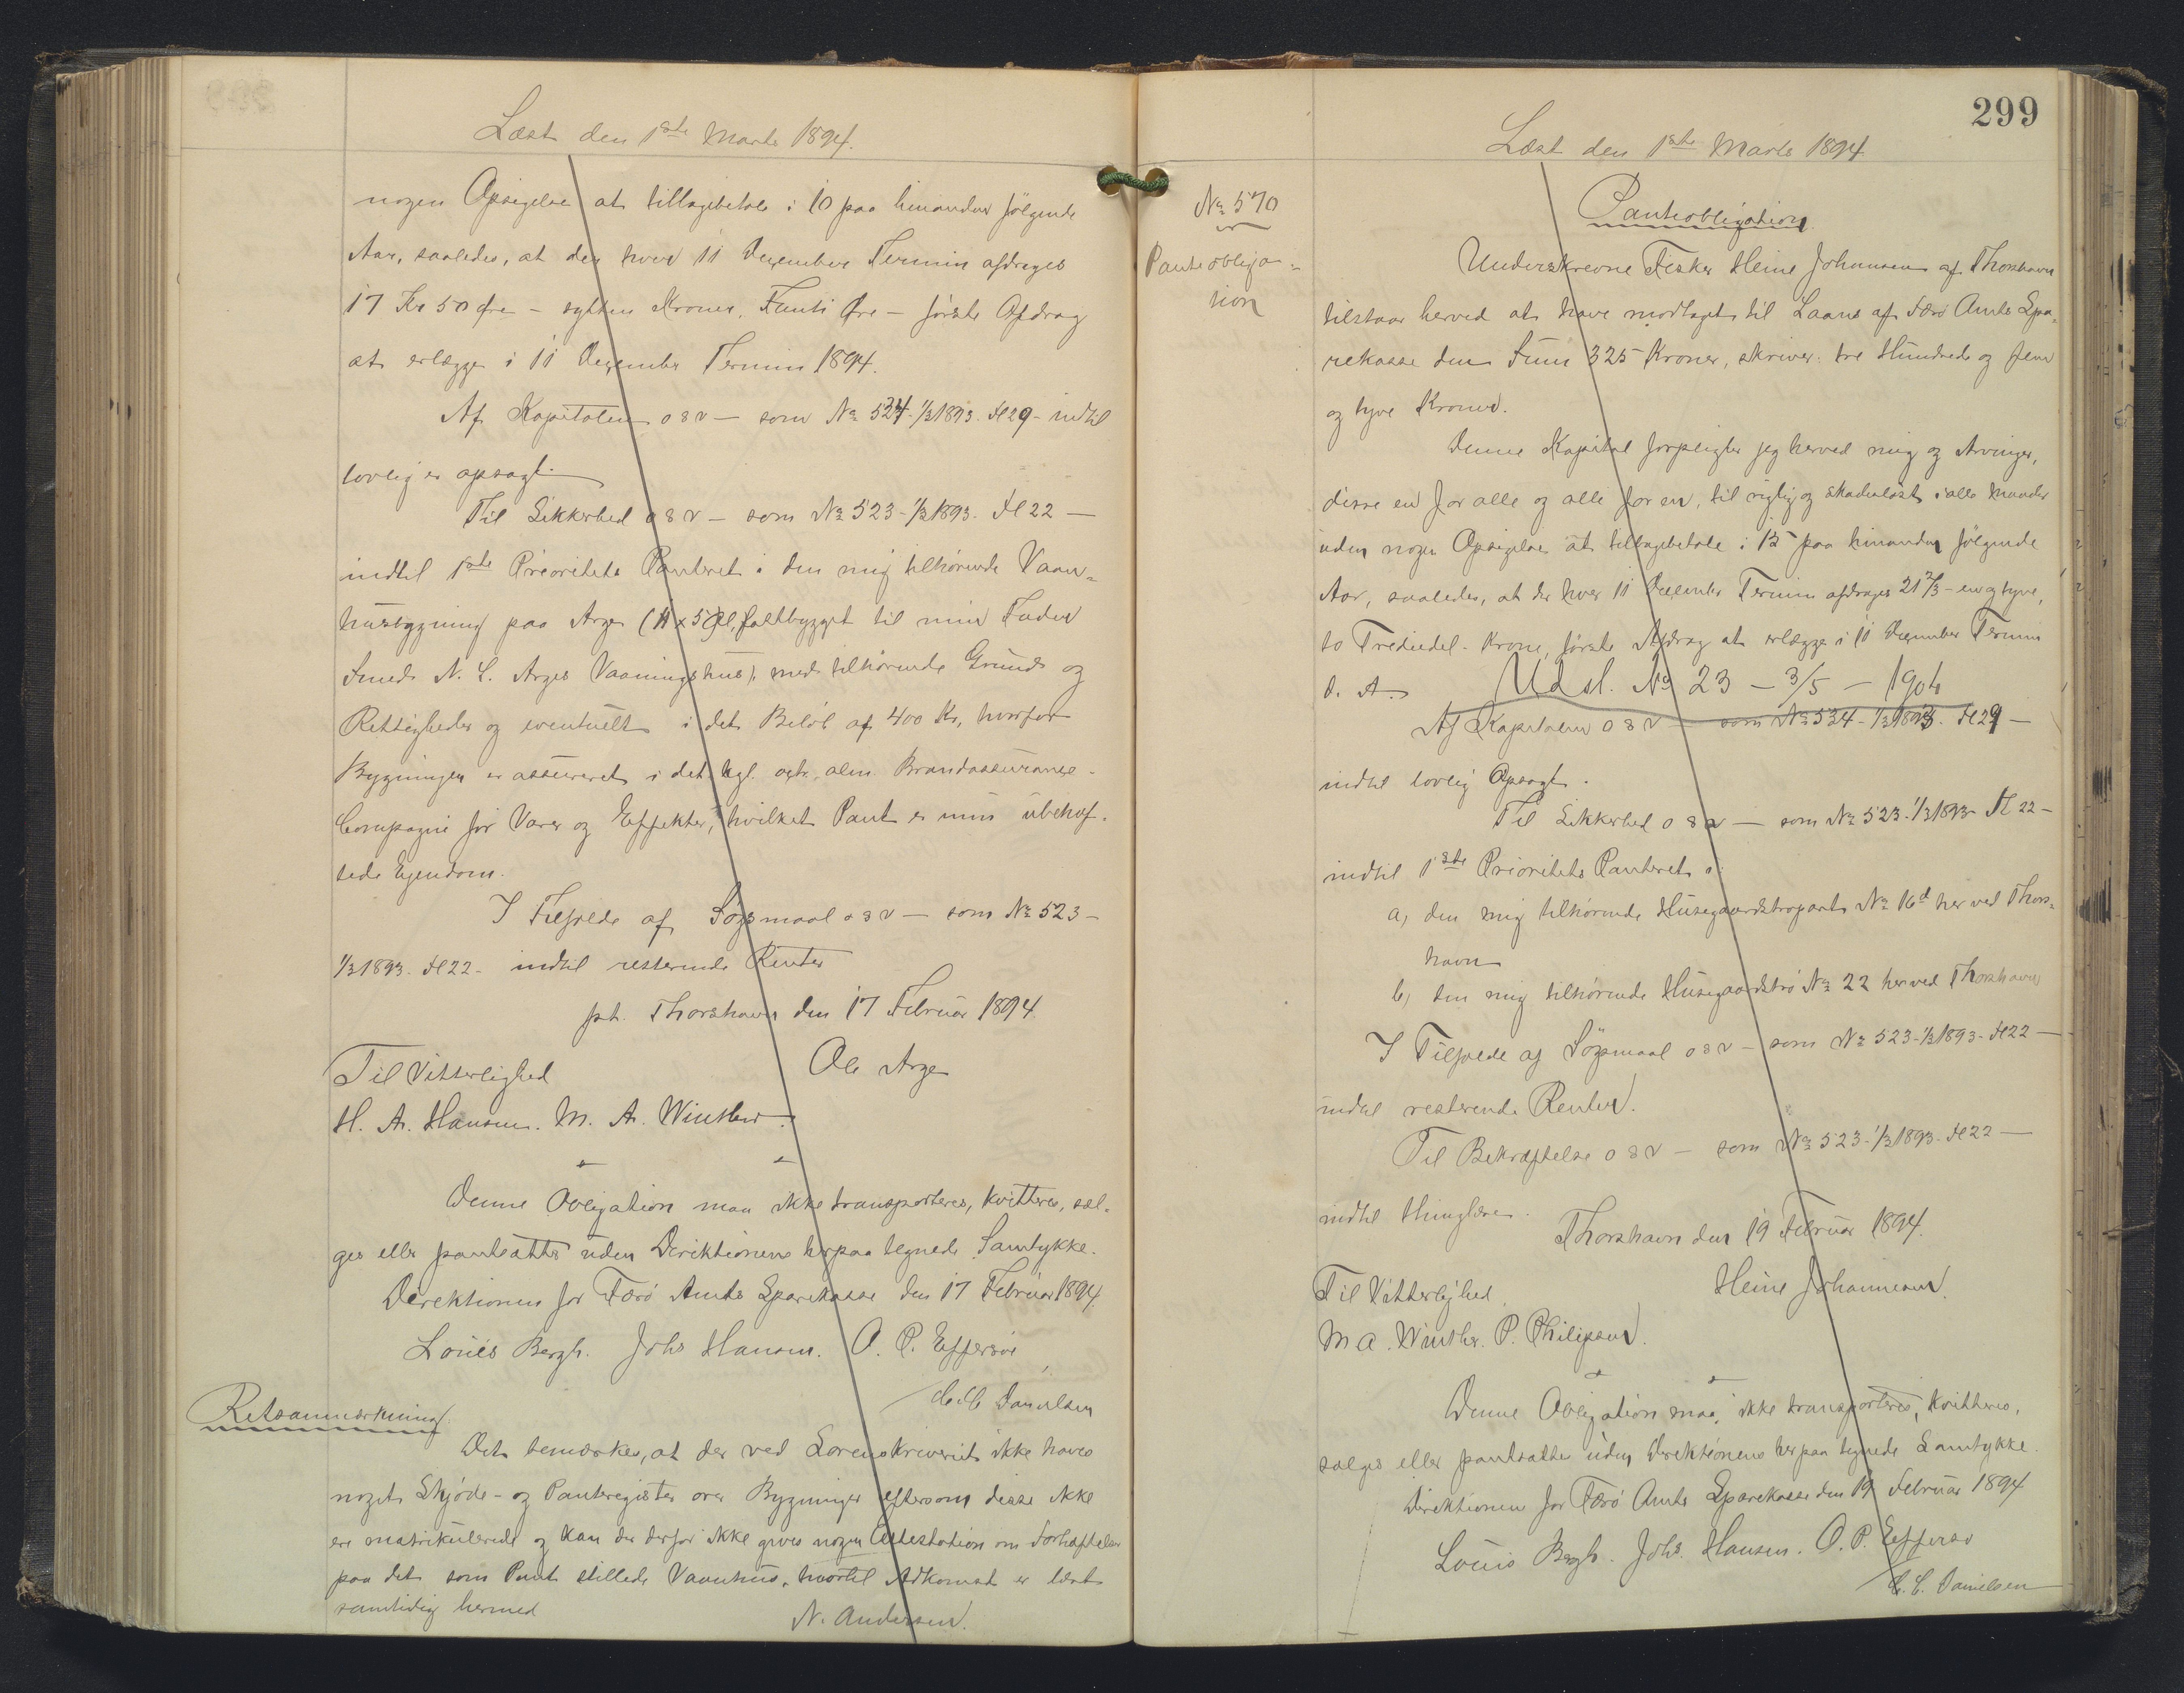 Læst den 1ste Marts 1894.
nogen Opsigelse at tilbagebetale i 10 paa hinanden følgende
Aar, saaledes, at der hver 11 December Termin afdrages
17 Kr 50 Øre - sytten Kroner, Femti Øre - første Afdrag
at erlægge i 11 December Termin 1894.
Af Kapitalen o s v - som No 524 - 1/3 1893. Fl 29 - indtil
lovlig er opsagt.
Til Sikkerhed o s v - som No 523 - 1/3 1893. Fl 22 -
indtil 1ste Prioritets Panteret i den mig tilhørende Vaan-
husbygning paa Arge (11 x 5 Al, fastbygget til min Faders
Smed N. L. Arges Vaaningshus), med tilhørende Grund og
Rettigheder og eventuelt i det Beløb af 400 Kr, hvorfor
Bygningen er assureret i det kgl. octr. alm. Brandassurance-
Compagni for Varer og Effekter, hvilket Pant er min ubehæf-
tede Ejendom.
I Tilfælde af Søgsmaal o s v - som No 523 -
1/3 1893. Fl 22 - indtil resterende Renter
pt. Thorshavn den 17 Februar 1894.
Til Vitterlighed Ole Arge
H. A. Hansen. M. A. Winther.
Denne Obligation maa ikke transporteres, kvitteres, sæl-
ges eller pantsættes uden Direktionens herpaa tegnede Samtykke.
Direktionen for Færø Amts Sparekasse den 17 Februar 1894.
Louis Bergh. Johs Hansen. O. P. Effersøe
C. C. Danielsen
Retsanmærkning.
Det bemærkes, at der ved Sorenskriveriet ikke haves
noget Skjøde- og Panteregister over Bygninger eftersom disse ikke
ere matrikulerede og kan der derfor ikke gives nogen Attestation om Forhæftelser
paa det som Pant stillede Vaanhus, hvortil Adkomst er læst
samtidig hermed
N. Andersen.
299
Læst den 1ste Marts 1894
No 570
Panteobliga-
tion
Panteobligation.
Underskrevne Fisker Heine Johannesen af Thorshavn
tilstaar herved at have modtaget til Laans af Færø Amts Spa-
rekasse den Sum 325 Kroner, skriver: tre Hundrede og fem
og tyve Kroner.
Denne Kapital forpligter jeg herved mig og Arvinger,
disse en for alle og alle for en, til rigtig og skadesløst i alle Maader
uden nogen Opsigelse at tilbagebetale i 15 paa hinanden følgende
Aar, saaledes, at der hver 11 December Termin afdrages 21 2/3 - en og tyve,
to Trediedel - Krone, første Afdrag at erlægge i 11 December Termin
d. A.
Udsl. No 23 - 3/5 - 1904
Af Kapitalen o s v - som No 524 - 1/3 1893. Fl 29 -
indtil lovlig Opsagt.
Til Sikkerhed o s v - som No 523 - 1/3 1893 - Fl 22 -
indtil 1ste Prioritets Panteret i
a, den mig tilhørende Husegaardstropart No 16d her ved Thors-
havn
b, den mig tilhørende Husegaardstrø No 22 her ved Thorshavn
I Tilfælde af Søgsmaal o s v - som No 523 - 1/3 1893 - Fl 22 -
indtil resterende Renter.
Til Bekræftelse o s v - som No 523 - 1/3 1893 - Fl 22 -
indtil thinglæses.
Thorshavn den 19 Februar 1894.
Til Vitterlighed Heine Johannesen.
M A. Winther. P. Philipsen.
Denne Obligation maa ikke transporteres, kvitteres,
sælges eller pantsættes uden Direktionens herpaa tegnede Samtykke.
Direktionen for Færø Amts Sparekasse den 19 Februar 1894
Louis Bergh. Johs. Hansen. O. P. Effersø
C. C. Danielsen